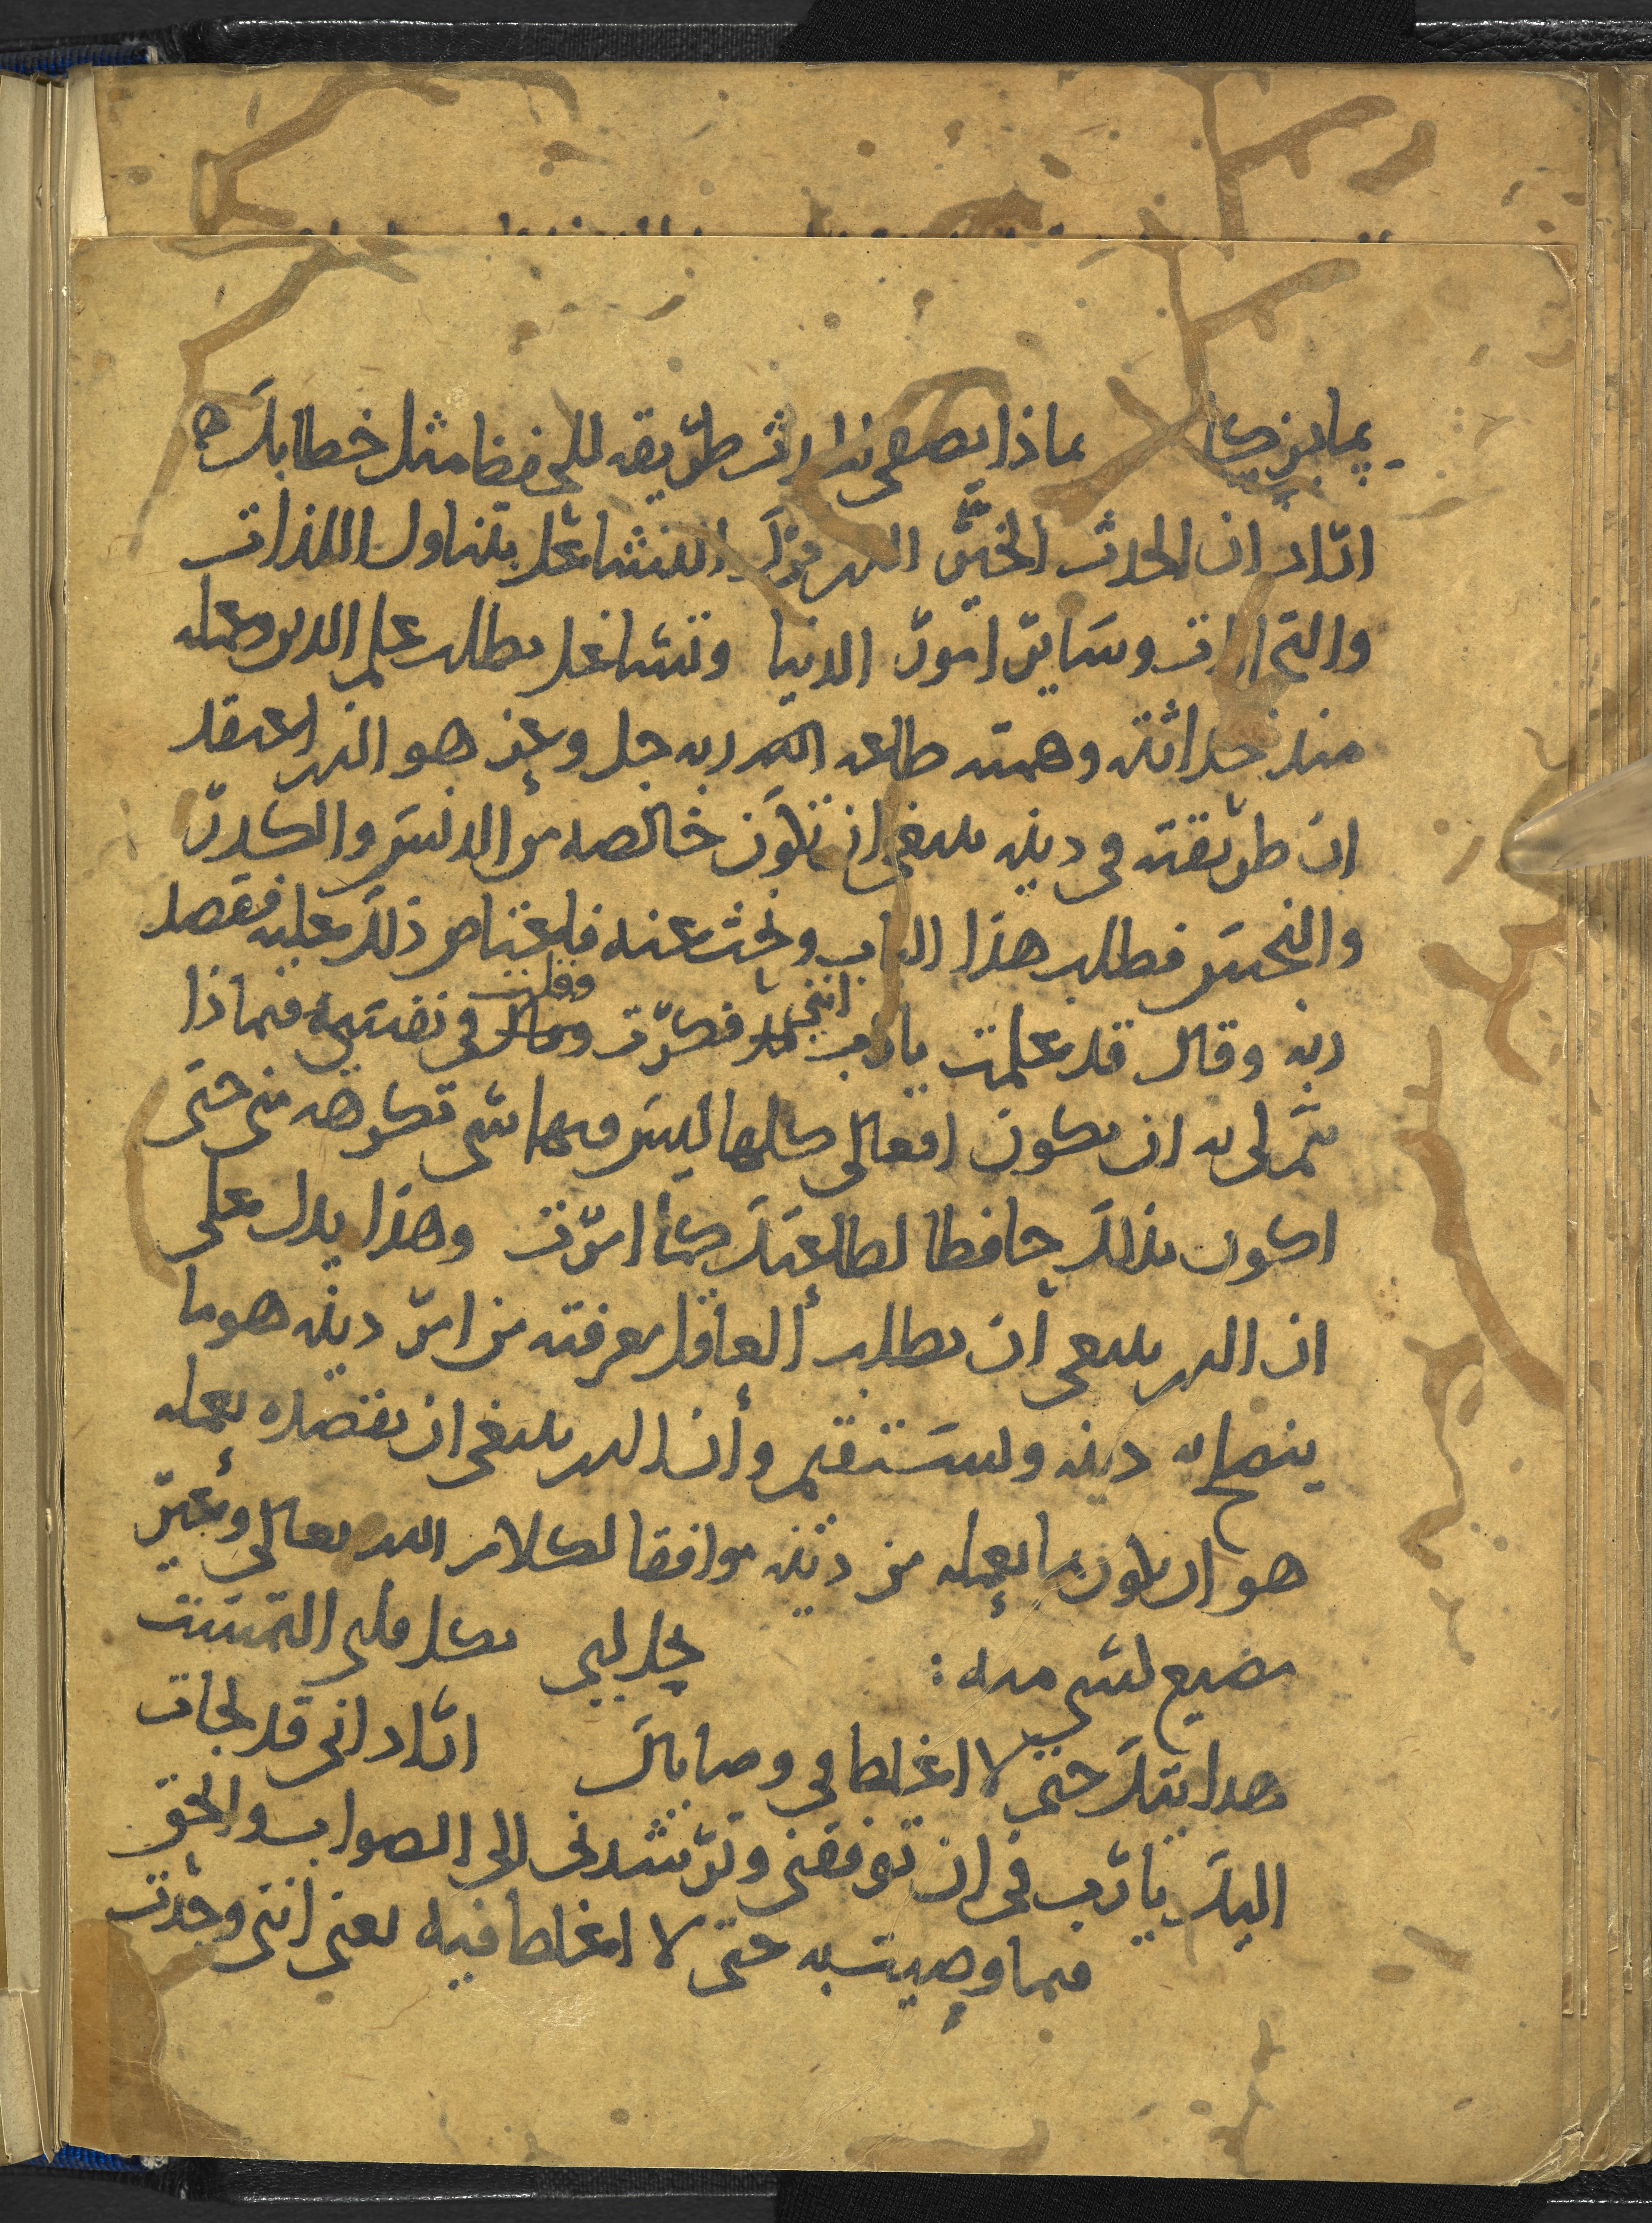 بما يزكا بماذا يصفى طريقه للحفض مثل خطابك ه
اراد ان الحدث الخير الذي ترك التشاغل بتناول اللذات
والتجارات وساير امور الدنيا وتشاغل بطلب علم الدين وعمله
منذ حداثته وهمته طاعه الله ربه جل وعز هو الذي اعتقد
ان طريقته في دينه ينبغي ان تكون خالصه من الدنس والكدر
والنجس فطلب هذا الباب وبحث عنه فاعتاص ذلك عليه فقصد
ربه وقال قد علمت يارب انني فكرت وقلت في نفسي فماذا
يتم لي به ان يكون افعالي كلها ليس فيها شي تكرهه مني حتى
اكون بذلك حافظا لطاعتك كما امرت وهذا يدل على
ان الذي ينبغي ان يطلب العاقل معرفته من امر دينه هو ما
ينصلح به دينه ويستقيم وأن الذي ينبغي ان يقصده بعمله
هو ان يكون ما يعمله من دينه موافقا لكلام الله تعالى وغير
مضيع لشي منه : بخل لبي بكل قلبي التمست
هدايتك حتى لا اغلط في وصاياك اراد اني قد لجات
اليك يارب في ان توفقني وترشدني الى الصواب والحق
فيما وصيت به حتى لا اغلط فيه يعني انني وجدت